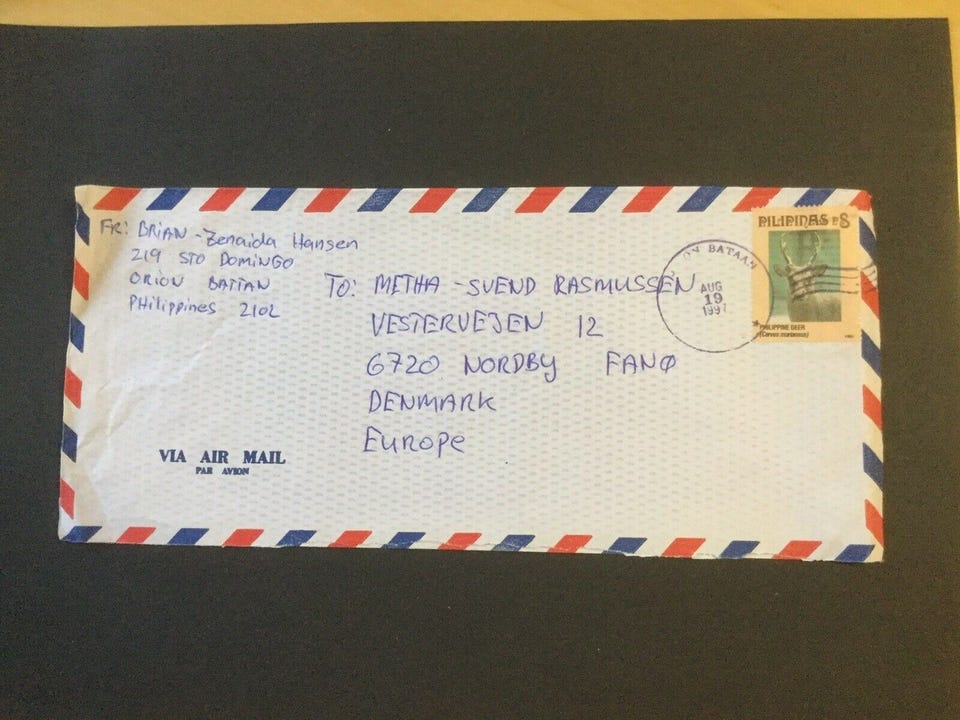 FR: BRIAN - Zenaida Hansen
219 STO DOMINGO
ORION BATTAN
PHilippines 2102
TO: METHA - SVEND RASMUSSEN
VESTERVEJEN 12
6720 NORDBY FANØ
DENMARK
EUROPE
VIA AIR MAIL
PAR AVION
ON BATAAN
AUG
19
1997
PILIPINAS P8
PHILIPPINE DEER
(Cervus mariannus)